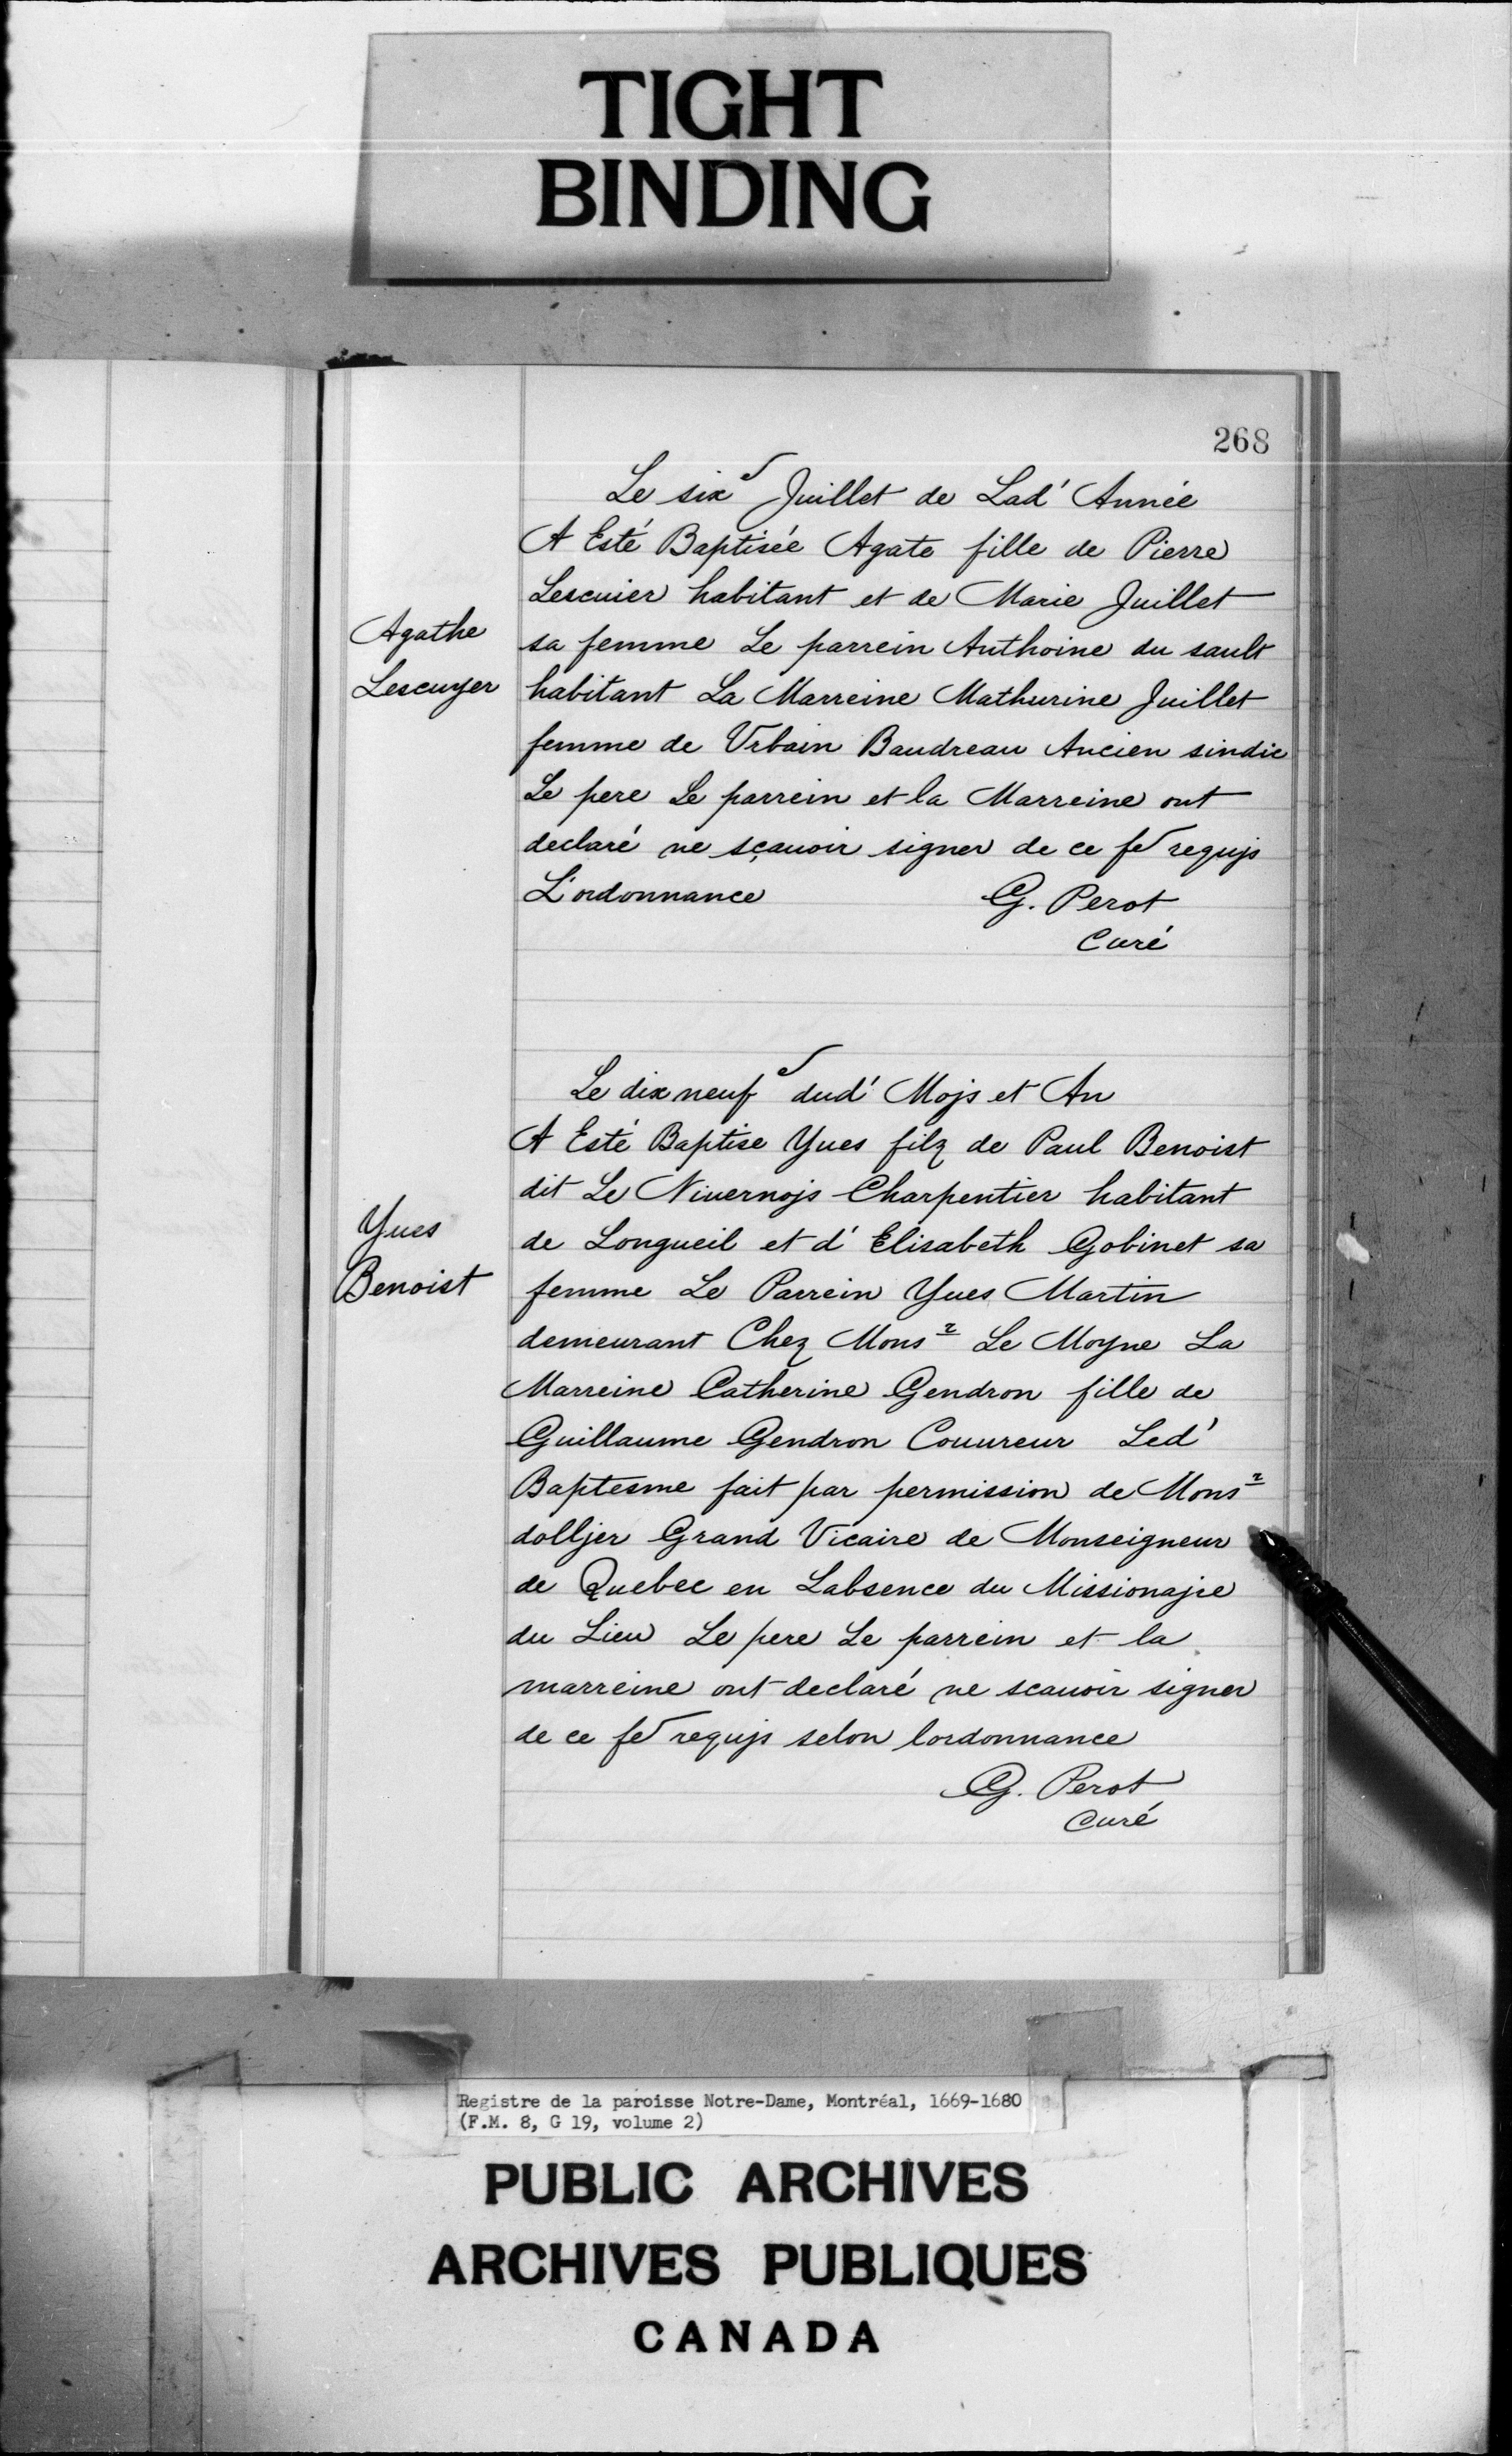 TIGHT
BINDING
268
Le six Juillet de Lad' Année
A Esté Baptisée Agate fille de Pierre
Lescuier habitant et de Marie Juillet
Agathe
sa femme Le parrein Anthoine du sault
Lescuyer
habitant La Marreine Mathurine Juillet
femme de Vrbain Baudreau Ancien sindic
Le pere Le parrein et la Marreine ont
declaré ne sçauoir signer de ce fe requis
L'ordonnance G. Perot
Curé
Le dix neuf dud' Mojs et An
A Esté Baptise Yues filz de Paul Benoist
dit Le Niuernojs Charpentier habitant
Yues
de Longueil et d' Elisabeth Gobinet sa
Benoist
femme Le Parrein Yues Martin
demeurant Chez Monsr Le Moyne La
Marreine Catherine Gendron fille de
Guillaume Gendron Couureur Led'
Baptesme fait par permission de Monsr
dolljer Grand Vicaire de Monseigneur
de Quebec en Labsence du Missionajre
du Lieu Le pere Le parrein et la
marreine ont declaré ne scauoir signer
de ce fe requjs selon lordonnance
G. Perot
Curé
Registre de la paroisse Notre-Dame, Montréal, 1669-1680
(F.M. 8, G 19, volume 2)
PUBLIC ARCHIVES
ARCHIVES PUBLIQUES
CANADA